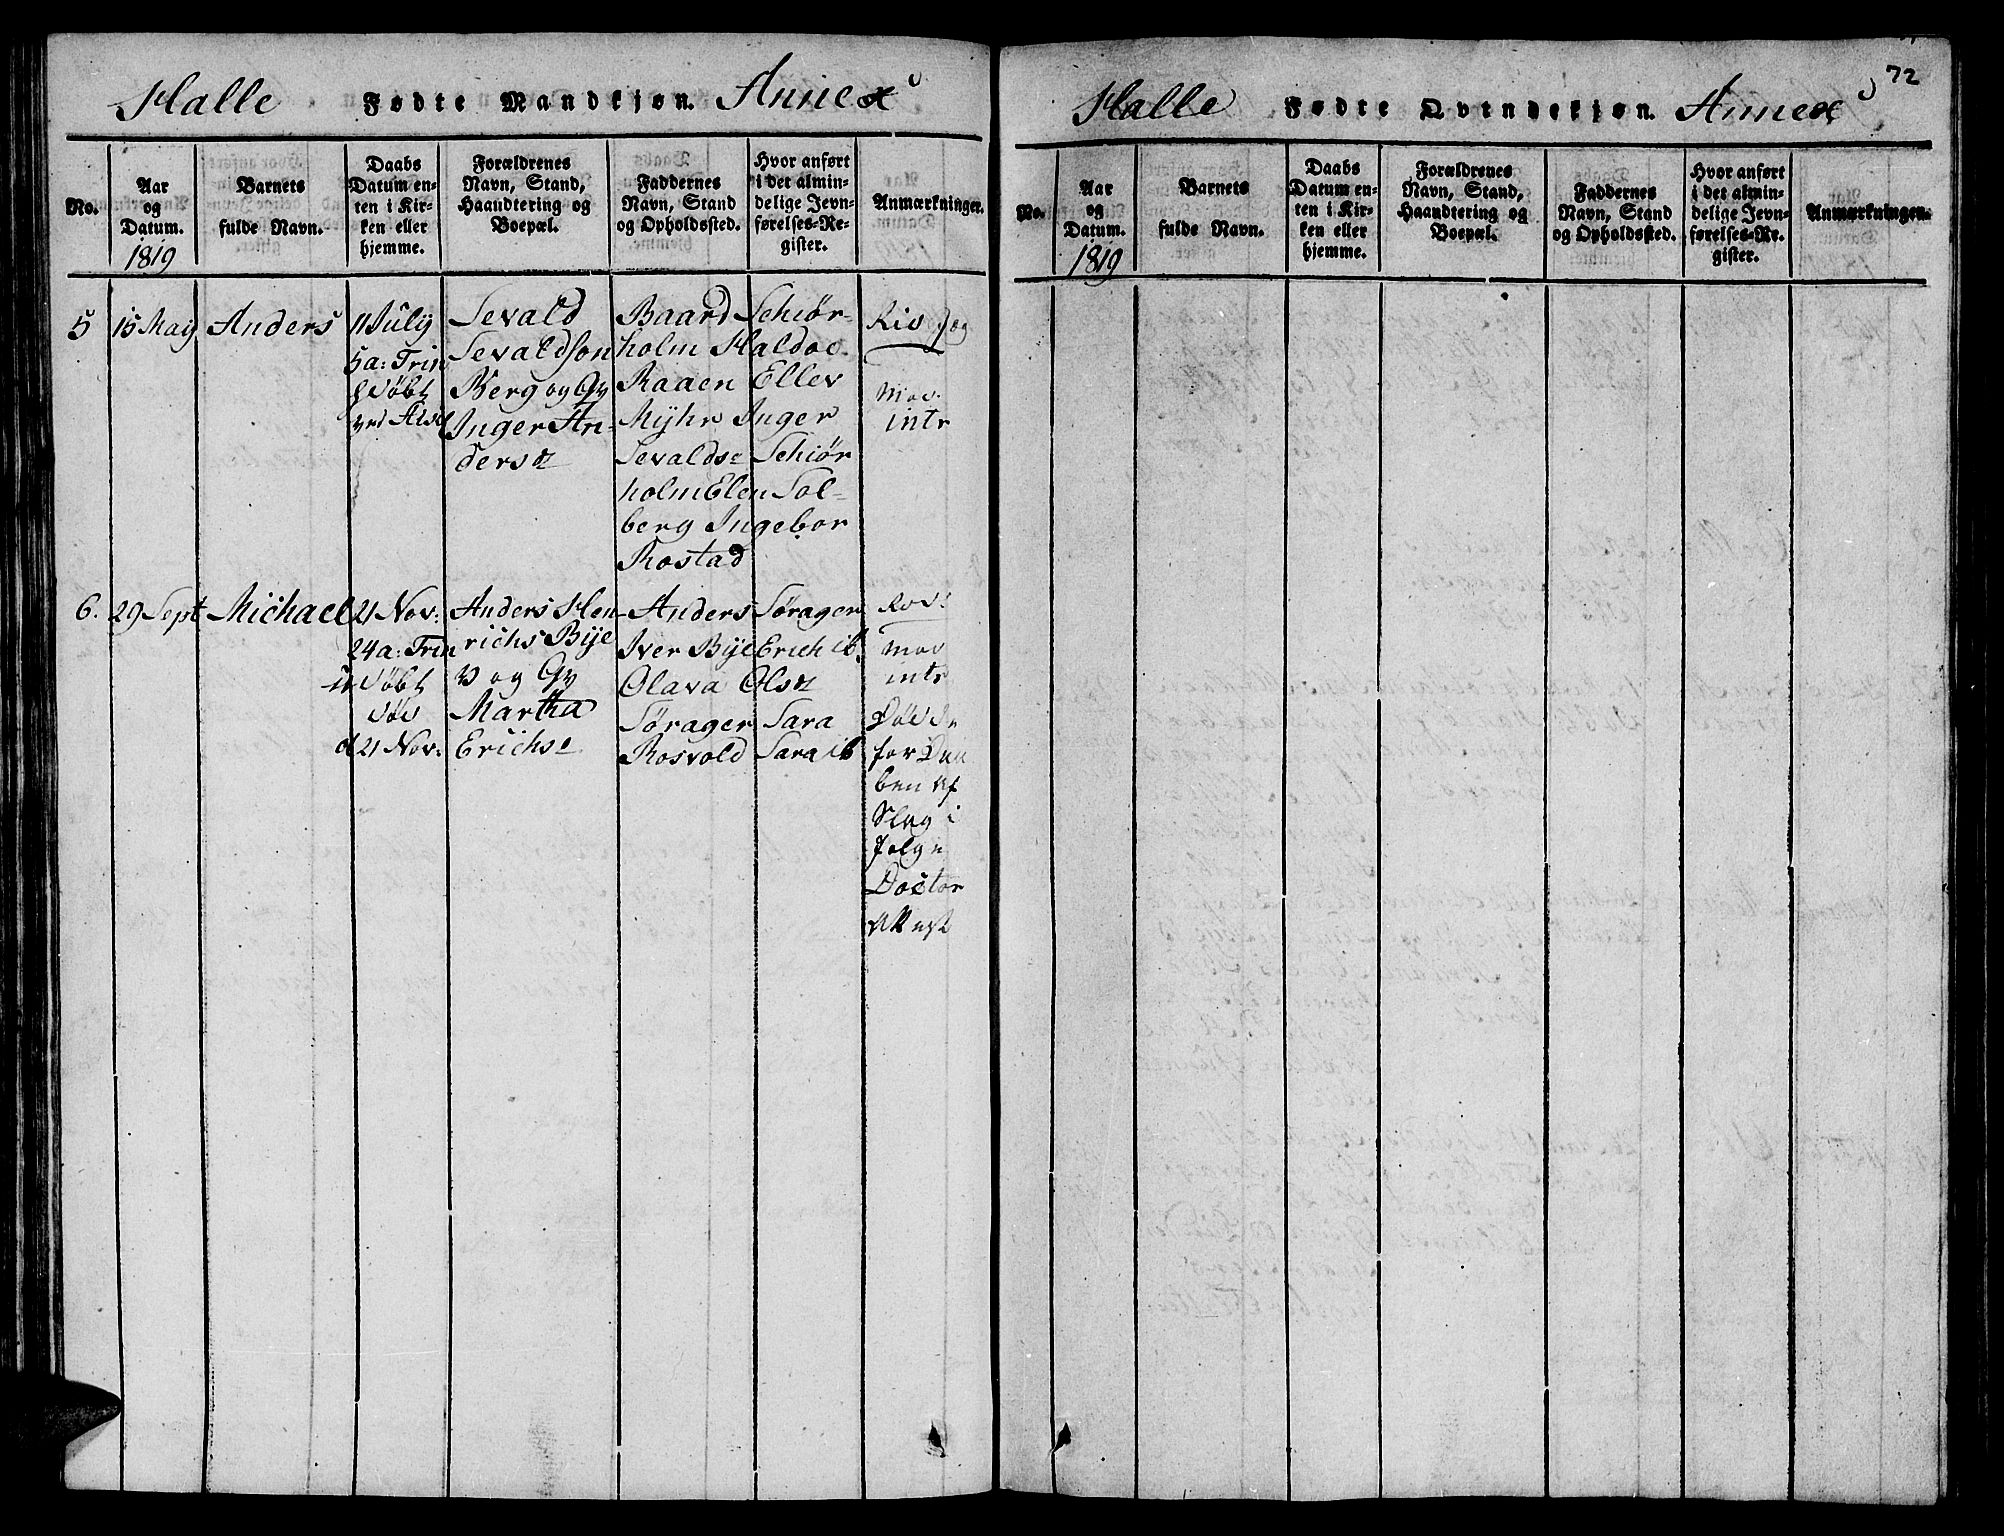 Halle Fødte Mandkjøn. Annex
No.
Aar
og
Datum.
1819
Barnets
fulde Navn.
Daabs
Datum en-
ten i Kir-
ken eller
hjemme.
Forældrenes
Navn, Stand,
Haandtering og
Boepæl.
Faddernes
Navn, Stand
og Opholdssted.
Hvor anført
i det almin-
delige Jevn-
førelses-Re-
gister.
Anmærkninger.
5
15 May
Anders
11 July
5 a: Trin
døbt
Sevald
Sevaldson
Berg og Gv
Inger An-
ders
Baard Schiør-
holm Haldoe
Raaen Ellev
Myhr Inger
Sevalds Schiør
holm Elen Sol-
berg Ingebor
Rostad
mod.
intr
6.
29 Sept
Michael
21 Nov:
24 a: Trin
døbt
død
d 21 Nov:
Anders Hen
richs Bye
og Gv
Martha
Erichs
Anders Sørager
Iver Bye Erich ib.
Olava Ols
Sørager Sara
Rosvold Sara ib
mod
intr
Døde
for Daa
ben af
Slag i
følge
Doctor
Attest
72
Halle Fødte Qvindekjøn. Annex
No.
Aar
og
Datum.
1819
Barnets
fulde Navn.
Daabs
Datum en-
ten i Kir-
ken eller
hjemme.
Forældrenes
Navn, Stand,
Haandtering og
Boepæl.
Faddernes
Navn, Stand
og Opholdssted.
Hvor anført
i det almin-
delige Jevn-
førelses-Re-
gister.
Anmærkninger.